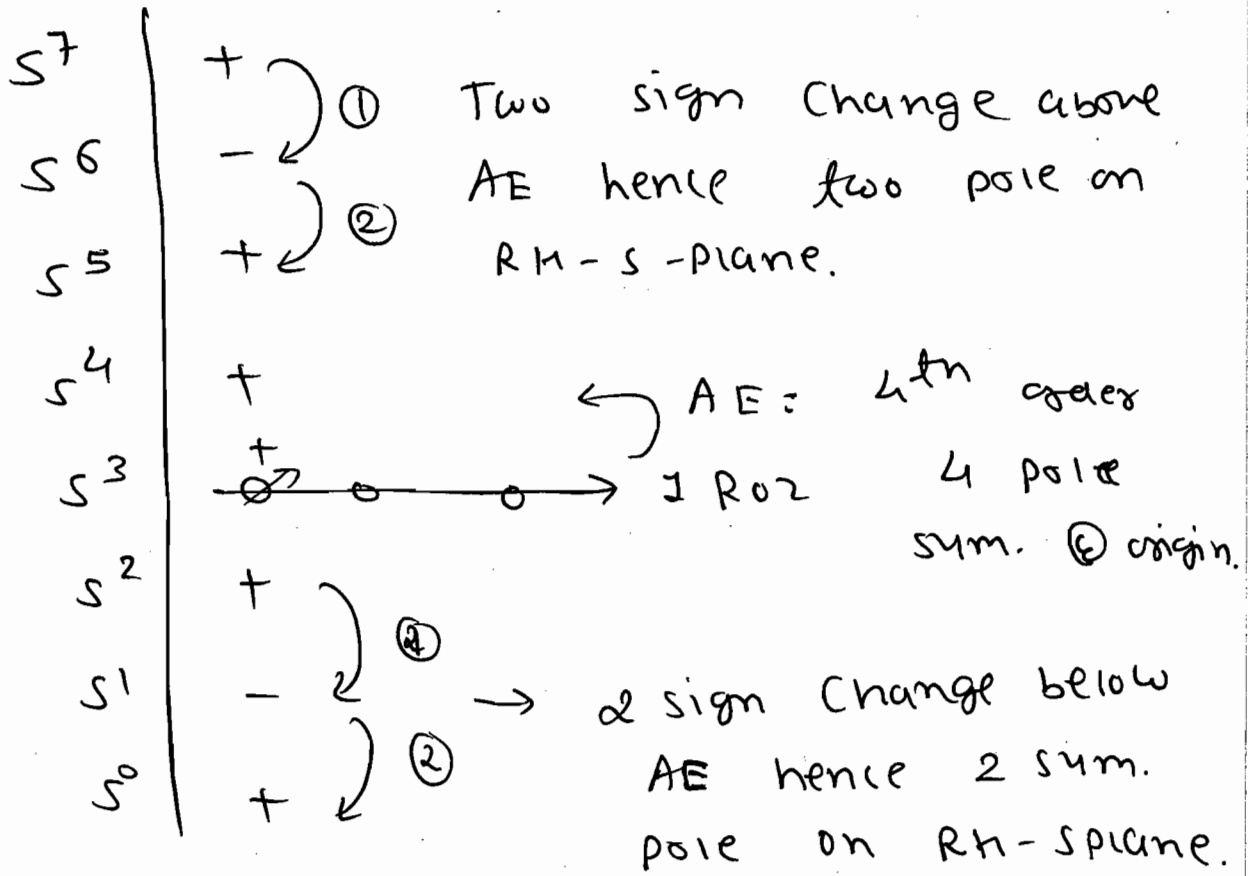 s⁷ + ① Two sign Change above
s⁶ - ② AE hence two pole on
s⁵ + RH-s-plane.
s⁴ + AE: 4th order
s³ + 1 ROZ 4 pole
sum. @ origin.
s² +
s¹ - → 2 sign Change below
s⁰ + ② AE hence 2 sum.
pole on RH-splane.